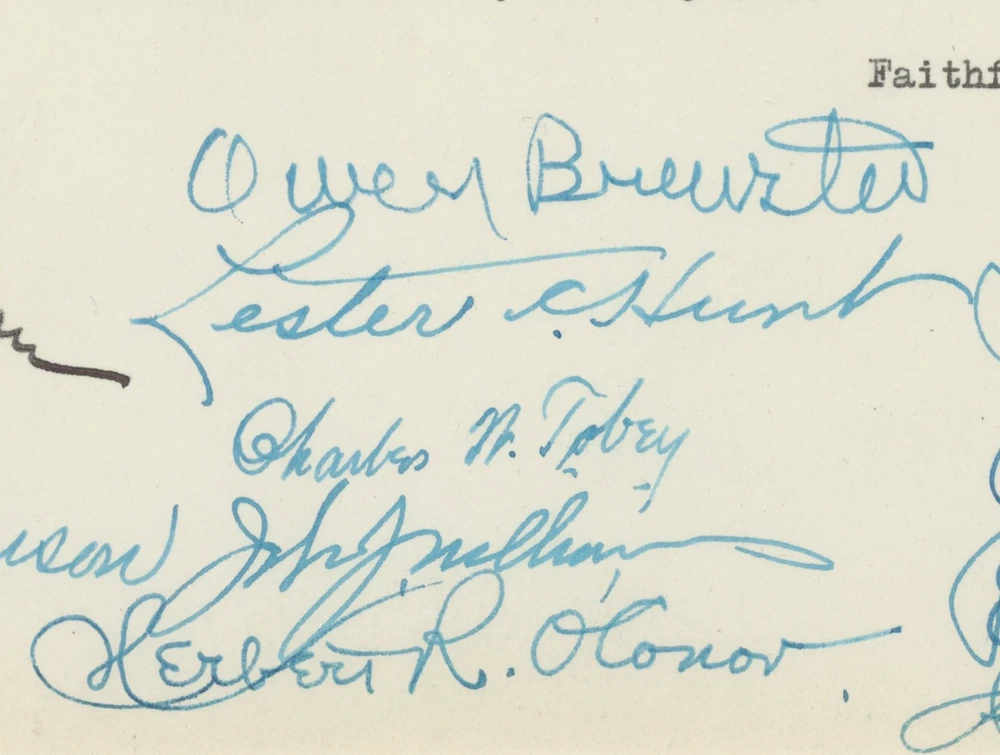 Faithf
Owen Brewster
Lester C. Hunt
Charles W. Tobey
John J. Williams
Herbert R. O'Conor